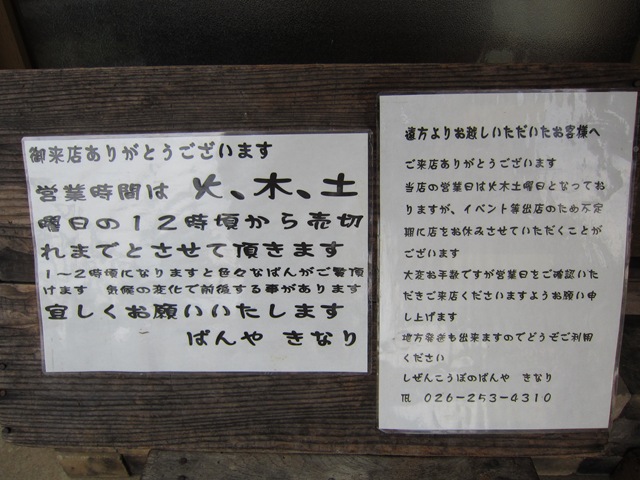 御来店ありがとうございます
営業時間は 火、木、土
曜日の12時頃から売切
れまでとさせて頂きます
1～2時頃になりますと色々なぱんがご覧頂
けます 気候の変化で前後する事があります
宜しくお願いいたします
ぱんや きなり
遠方よりお越しいただいたお客様へ
ご来店ありがとうございます
当店の営業日は火木土曜日となってお
りますが、イベント等出店のため不定
期に店をお休みさせていただくことが
ございます
大変お手数ですが営業日をご確認いた
だきご来店くださいますようお願い申
し上げます
地方発送も出来ますのでどうぞご利用
ください
しぜんこうぼのぱんや きなり
℡ 026-253-4310